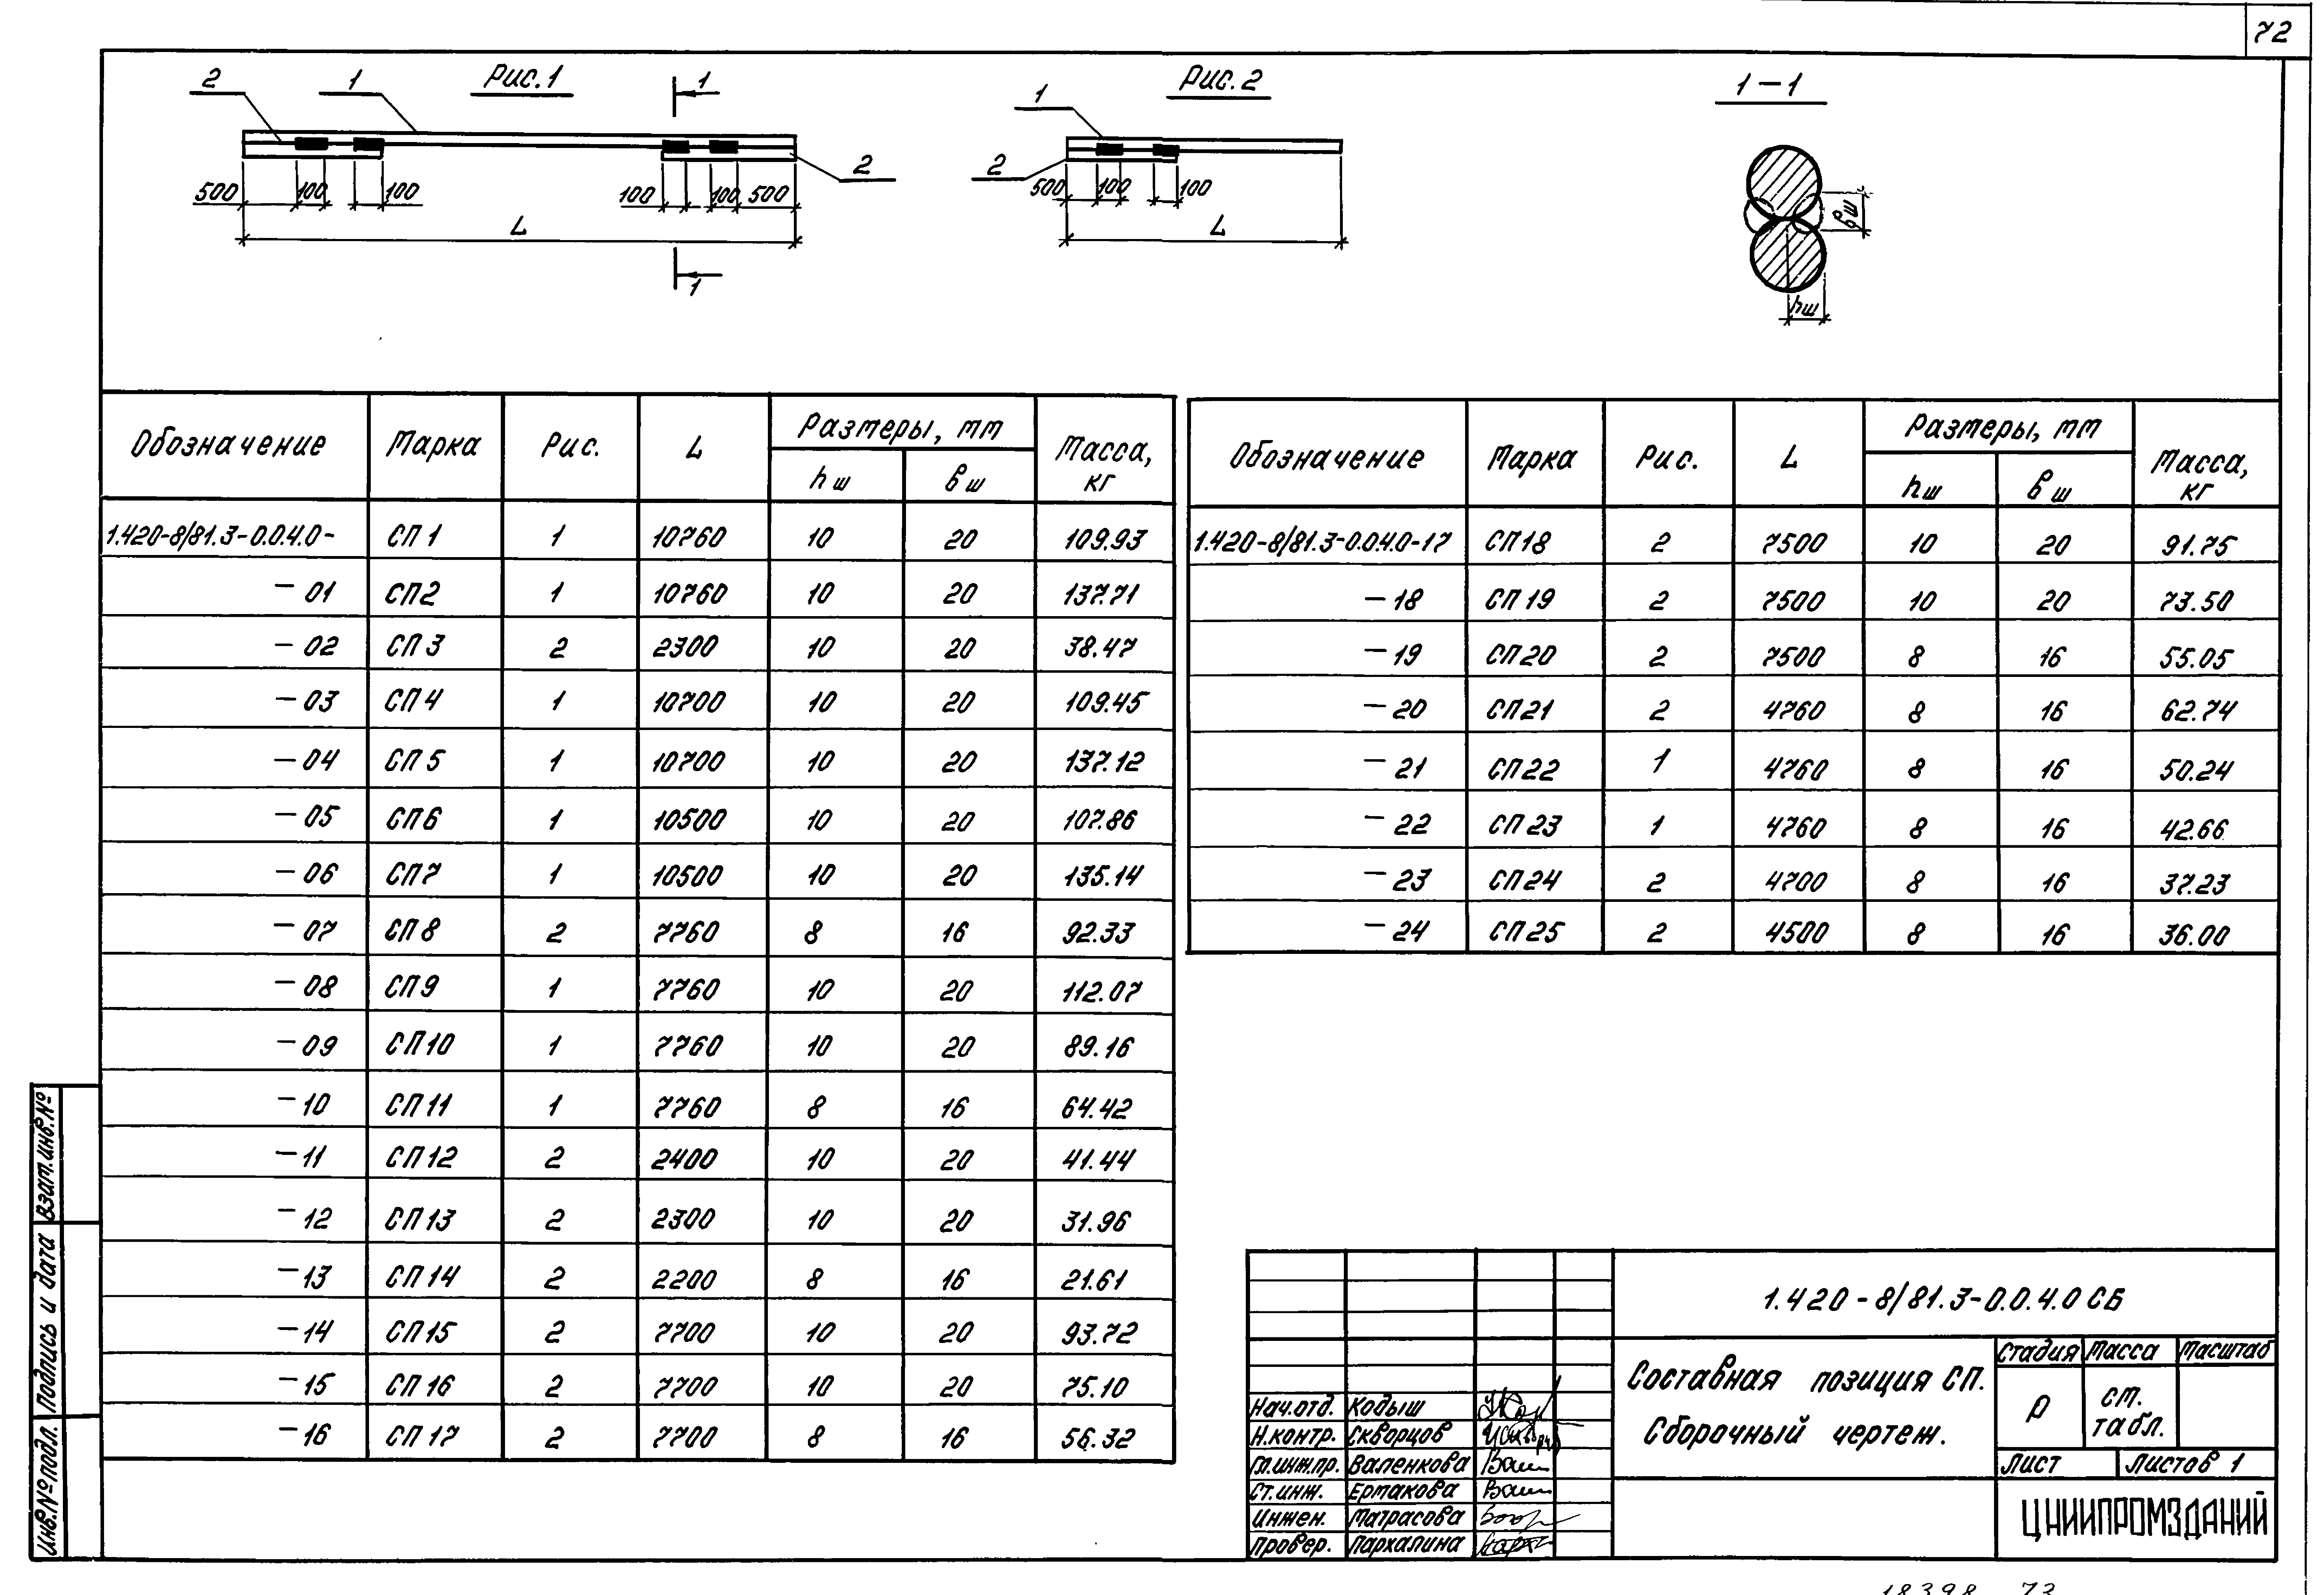 72
Рис.1
2 1 1
2
500 100 100 100 100 500
L
1
Рис.2
1
2
500 100 100
L
1-1
вш
hш
Обозначение Марка Рис. L Размеры, мм Масса, кг
hш вш
1.420-8/81.3-0.0.4.0- СП1 1 10760 10 20 109.93
-01 СП2 1 10760 10 20 137.71
-02 СП3 2 2300 10 20 38.47
-03 СП4 1 10700 10 20 109.45
-04 СП5 1 10700 10 20 137.12
-05 СП6 1 10500 10 20 107.86
-06 СП7 1 10500 10 20 135.14
-07 СП8 2 7760 8 16 92.33
-08 СП9 1 7760 10 20 112.07
-09 СП10 1 7760 10 20 89.16
-10 СП11 1 7760 8 16 64.42
-11 СП12 2 2400 10 20 41.44
-12 СП13 2 2300 10 20 31.96
-13 СП14 2 2200 8 16 21.61
-14 СП15 2 7700 10 20 93.72
-15 СП16 2 7700 10 20 75.10
-16 СП17 2 7700 8 16 56.32
Обозначение Марка Рис. L Размеры, мм Масса, кг
hш вш
1.420-8/81.3-0.0.4.0-17 СП18 2 7500 10 20 91.75
-18 СП19 2 7500 10 20 73.50
-19 СП20 2 7500 8 16 55.05
-20 СП21 2 4760 8 16 62.74
-21 СП22 1 4760 8 16 50.24
-22 СП23 1 4760 8 16 42.66
-23 СП24 2 4700 8 16 37.23
-24 СП25 2 4500 8 16 36.00
Взам.инв.№
Подпись и дата
Инв.№ подл.
1.420-8/81.3-0.0.4.0 СБ
Составная позиция СП.
Сборочный чертеж.
Стадия Масса Масштаб
Р ст. табл.
Лист Листов 1
ЦНИИПРОМЗДАНИЙ
Нач.отд. Кодыш
Н.контр. Скворцов
Гл.инж.пр. Валенкова
Ст.инж. Ермакова
Инжен. Матрасова
Провер. Пархалина
18398 73